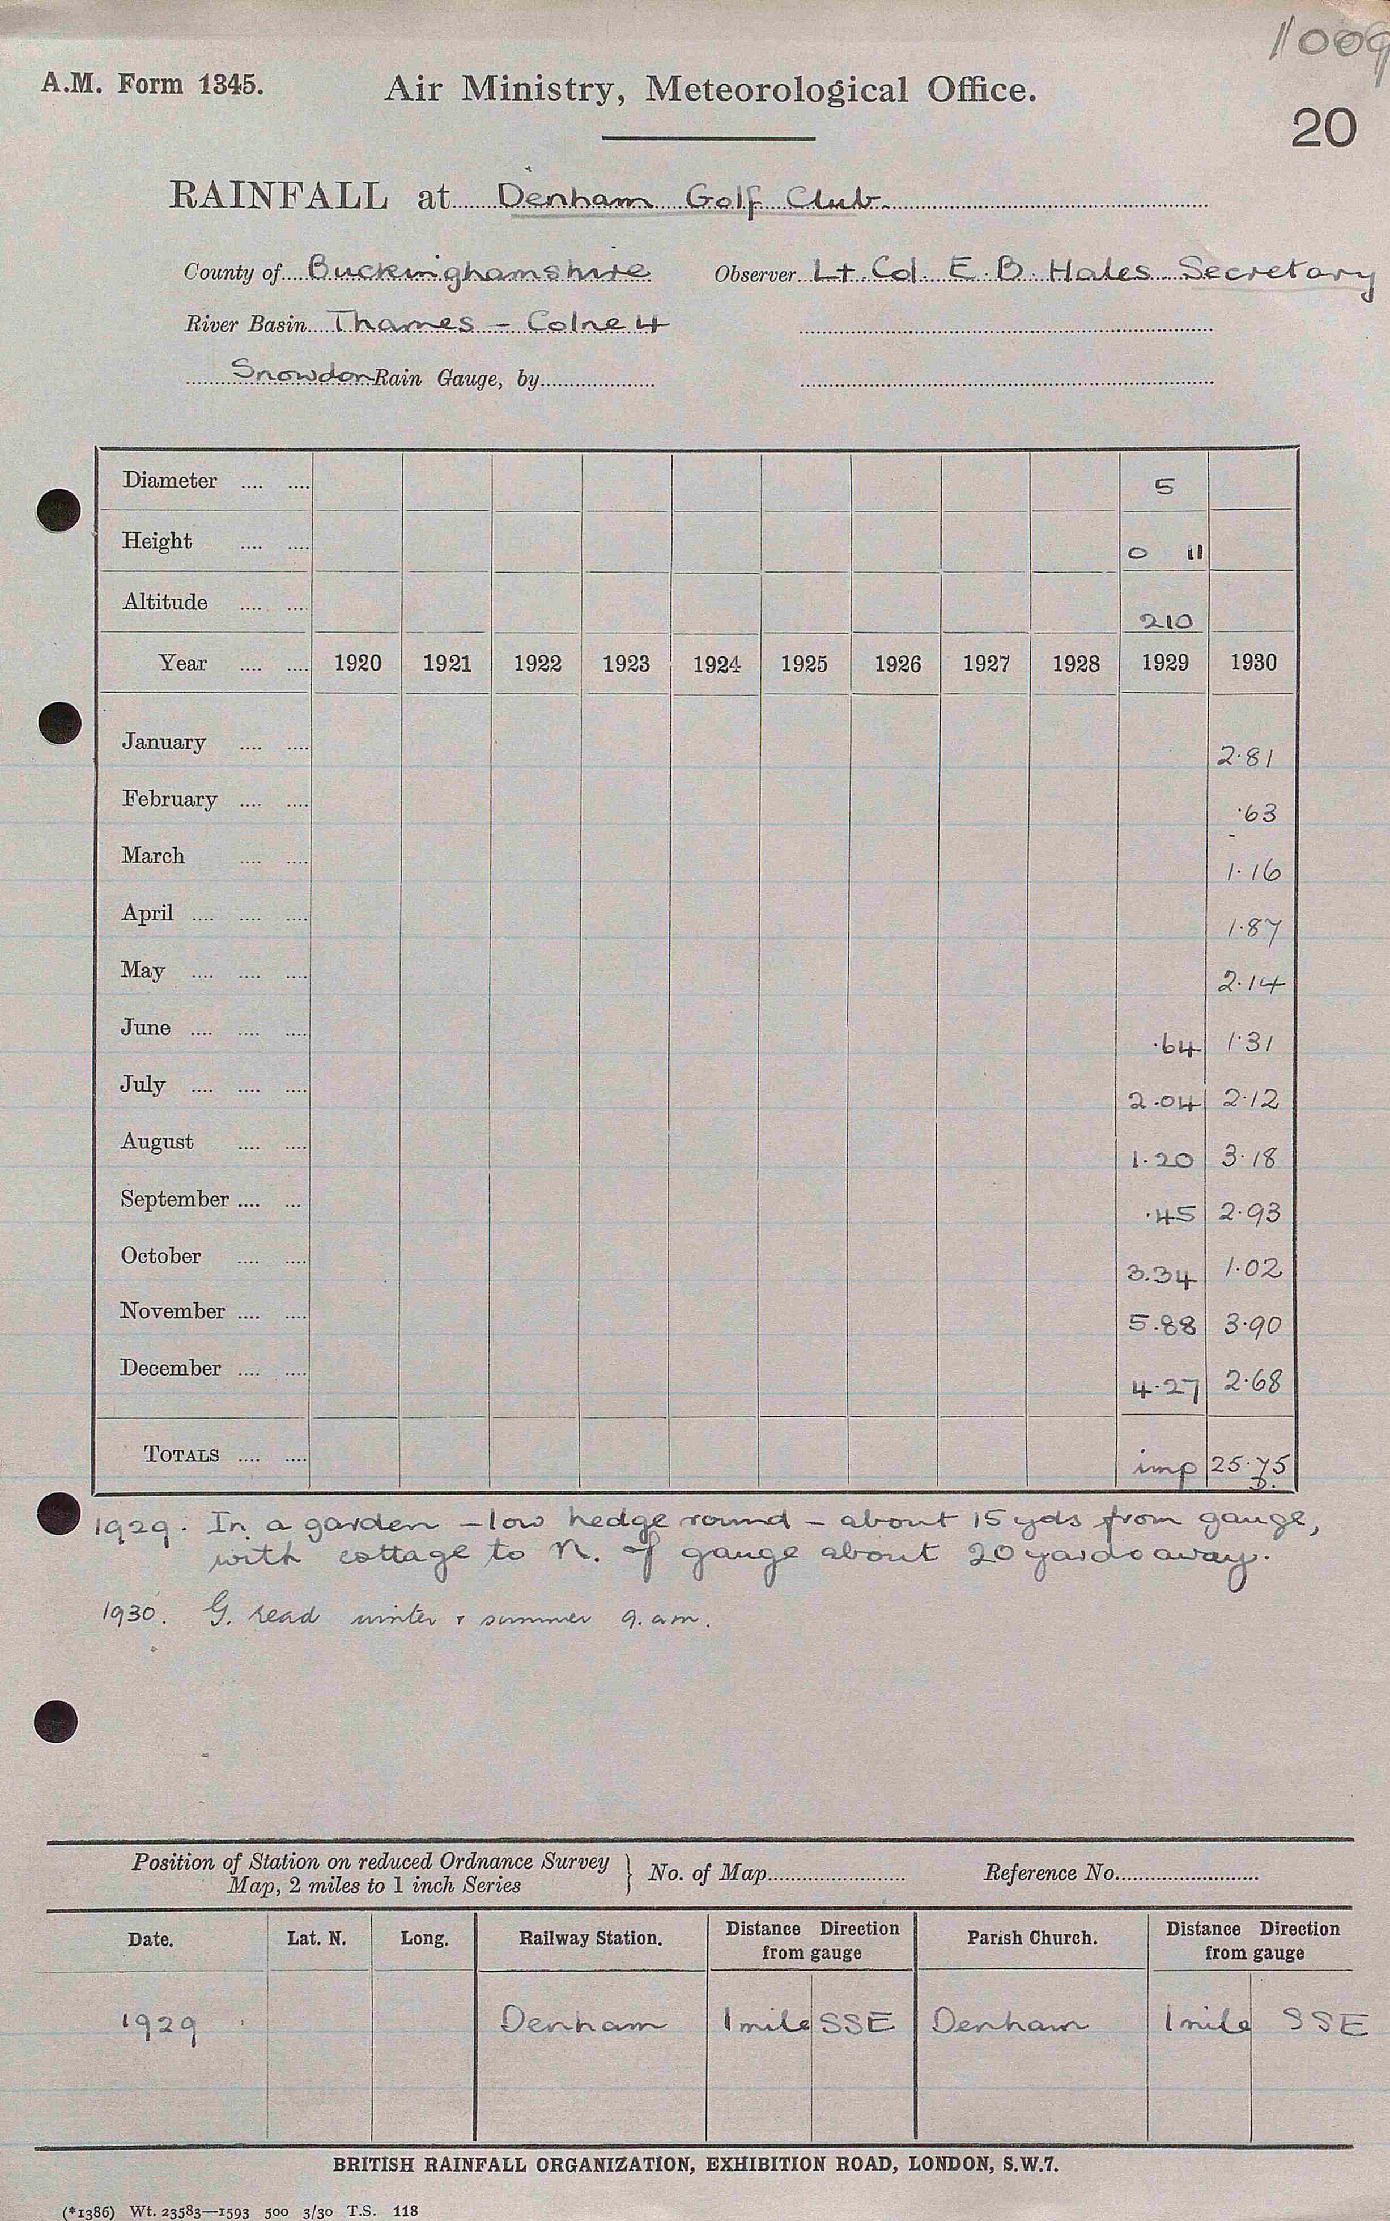 1009
A.M. Form 1345.
Air Ministry, Meteorological Office.
20
RAINFALL at Denham Golf Club
County of Buckinghamshire Observer Lt. Col. E. B. Hales Secretary
River Basin Thames - Colne 4
Snowdon Rain Gauge, by
Diameter 5
Height 0 11
Altitude 210
Year 1920 1921 1922 1923 1924 1925 1926 1927 1928 1929 1930
January 2.81
February .63
March 1.16
April 1.87
May 2.14
June .64 1.31
July 2.04 2.12
August 1.20 3.18
September .45 2.93
October 3.34 1.02
November 5.88 3.90
December 4.27 2.68
TOTALS imp 25.75
D.
1929. In a garden - low hedge round - about 15 yds from gauge,
with cottage to N. of gauge about 20 yards away.
1930. G. read winter & summer 9. a.m.
Position of Station on reduced Ordnance Survey
Map, 2 miles to 1 inch Series } No. of Map Reference No.
Date. Lat. N. Long. Railway Station. Distance Direction from gauge Parish Church. Distance Direction from gauge
1929 Denham 1 mile SSE Denham 1 mile SSE
BRITISH RAINFALL ORGANIZATION, EXHIBITION ROAD, LONDON, S.W.7.
(*1386) Wt. 23583—1593 500 3/30 T.S. 118